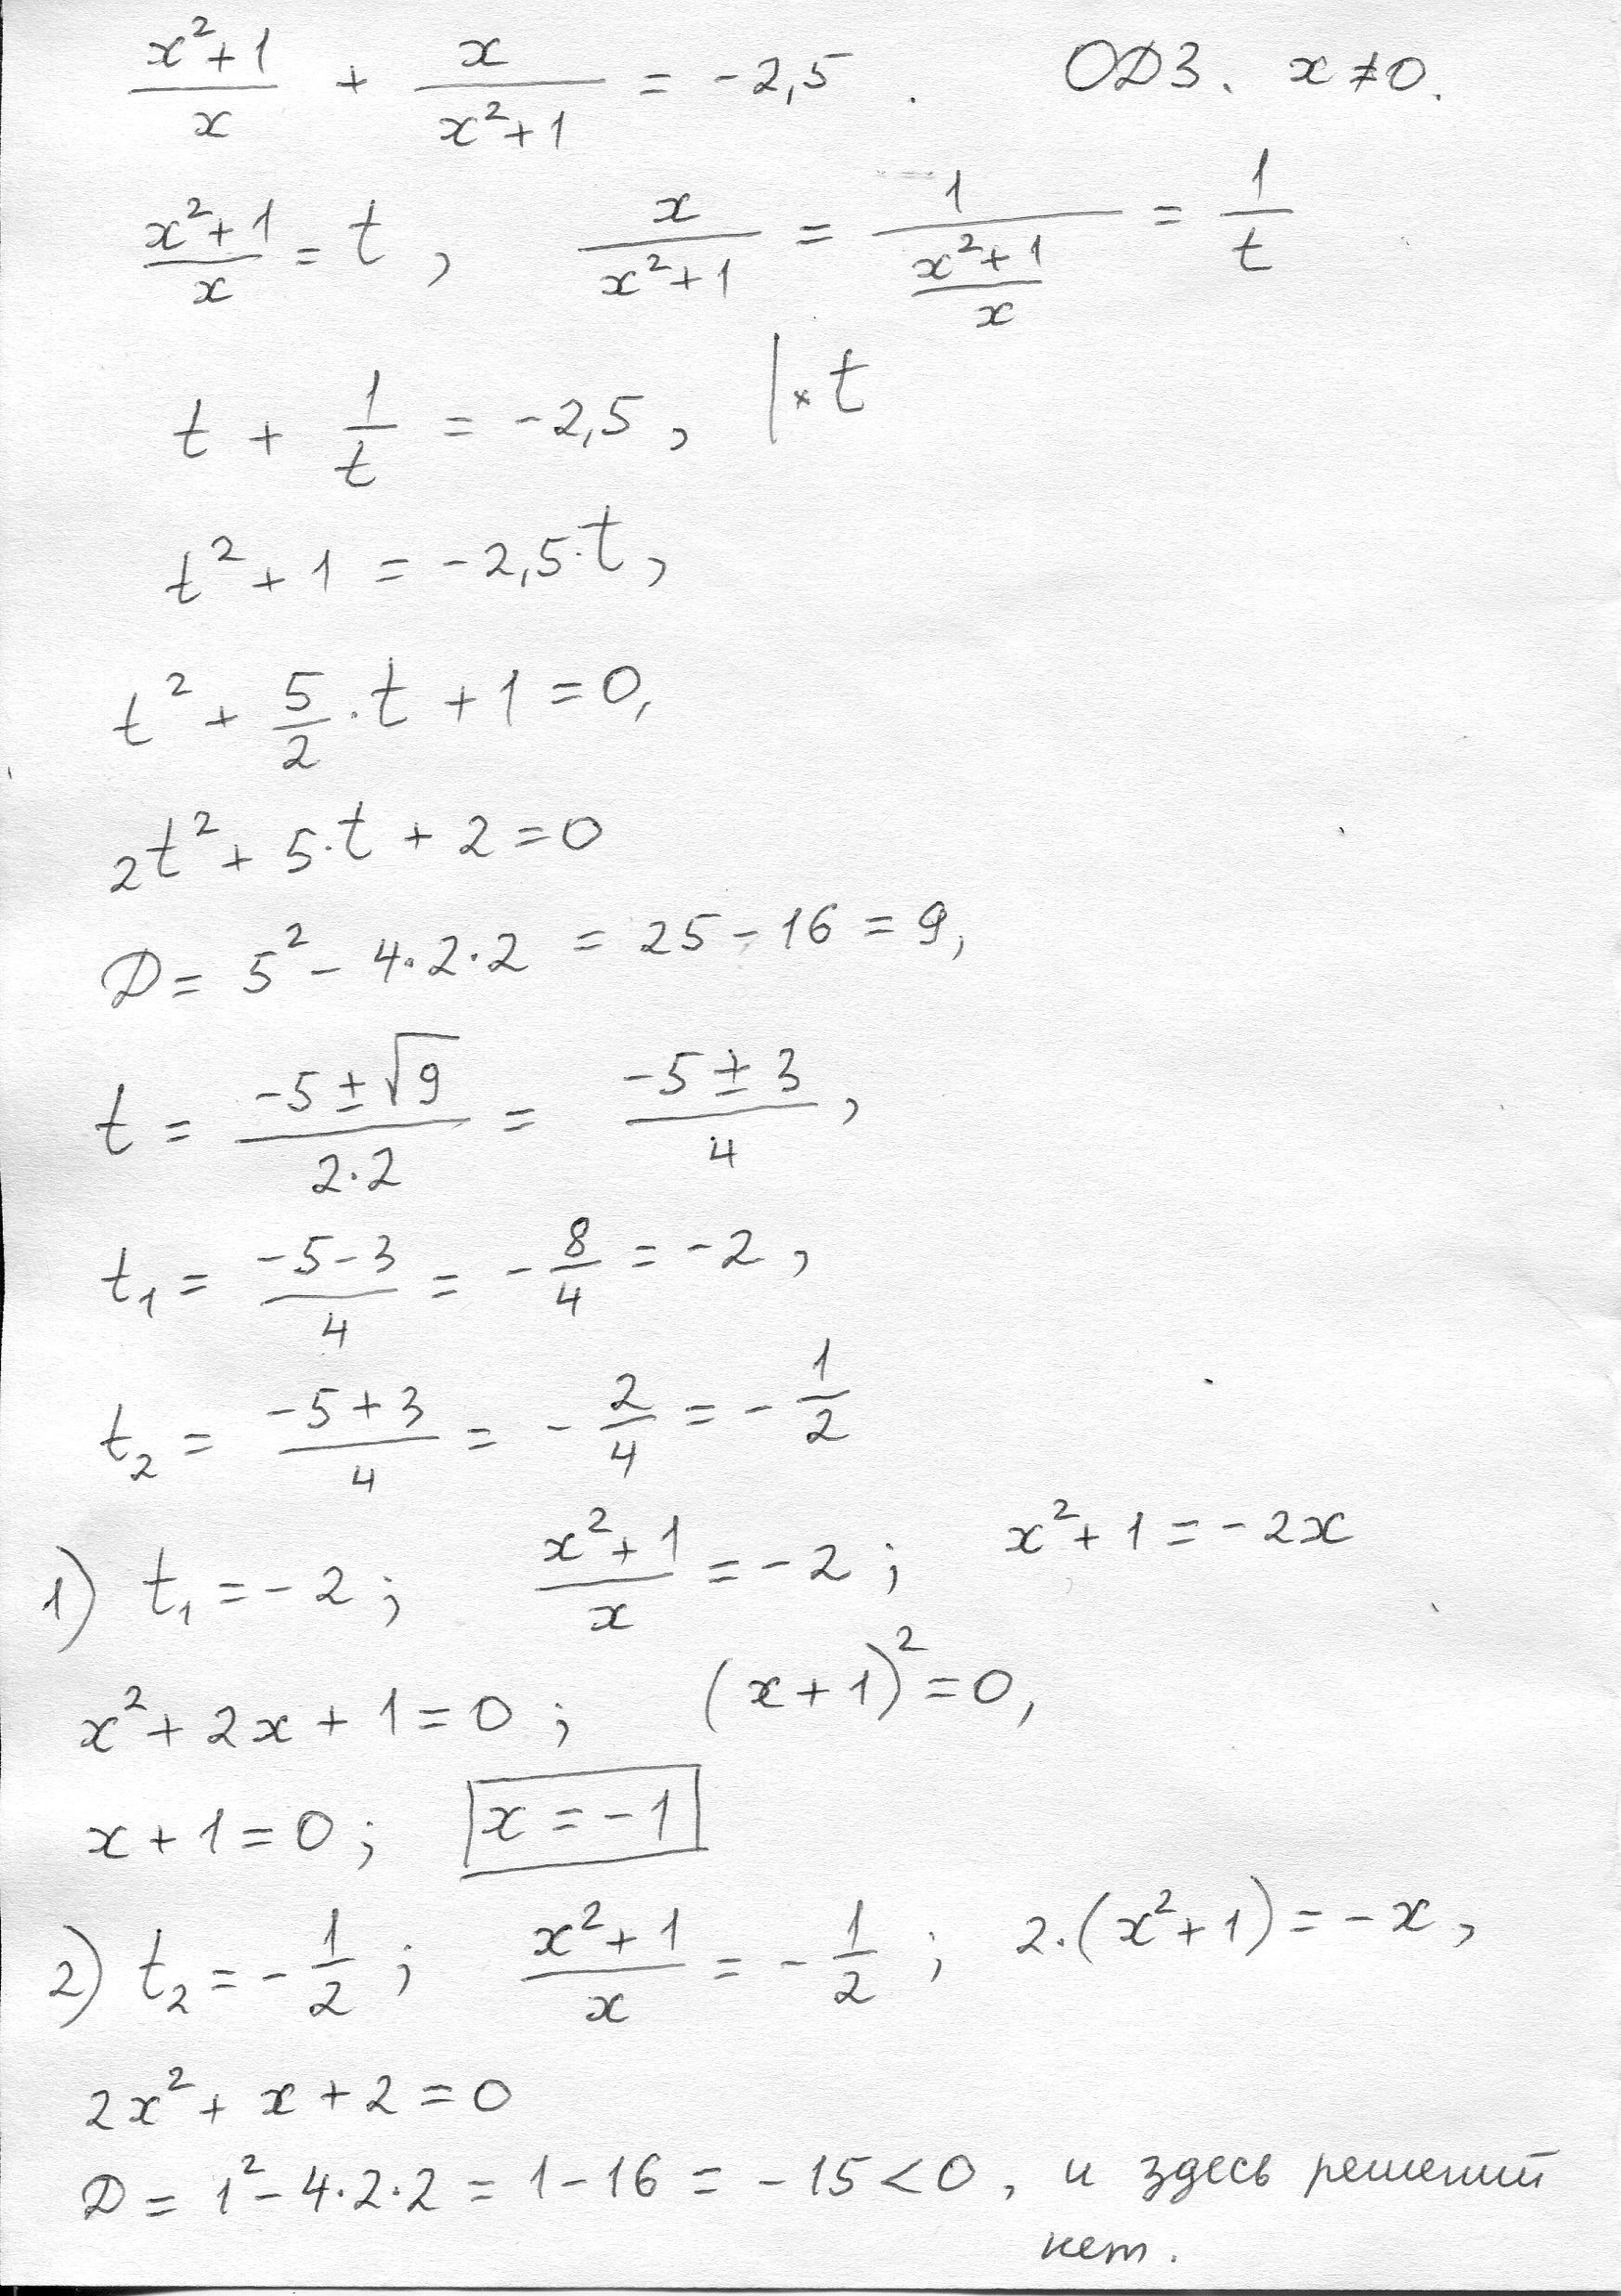 (x²+1)/x + x/(x²+1) = -2,5. ОДЗ. x≠0.
(x²+1)/x = t, x/(x²+1) = 1/((x²+1)/x) = 1/t
t + 1/t = -2,5, |×t
t² + 1 = -2,5·t,
t² + 5/2·t + 1 = 0,
2t² + 5·t + 2 = 0
D = 5² - 4·2·2 = 25 - 16 = 9,
t = (-5±√9)/(2·2) = (-5±3)/4,
t₁ = (-5-3)/4 = -8/4 = -2,
t₂ = (-5+3)/4 = -2/4 = -1/2
1) t₁ = -2; (x²+1)/x = -2; x²+1 = -2x
x² + 2x + 1 = 0; (x+1)² = 0,
x+1 = 0; x = -1
2) t₂ = -1/2; (x²+1)/x = -1/2; 2·(x²+1) = -x,
2x² + x + 2 = 0
D = 1² - 4·2·2 = 1 - 16 = -15 < 0, и здесь решений
нет.